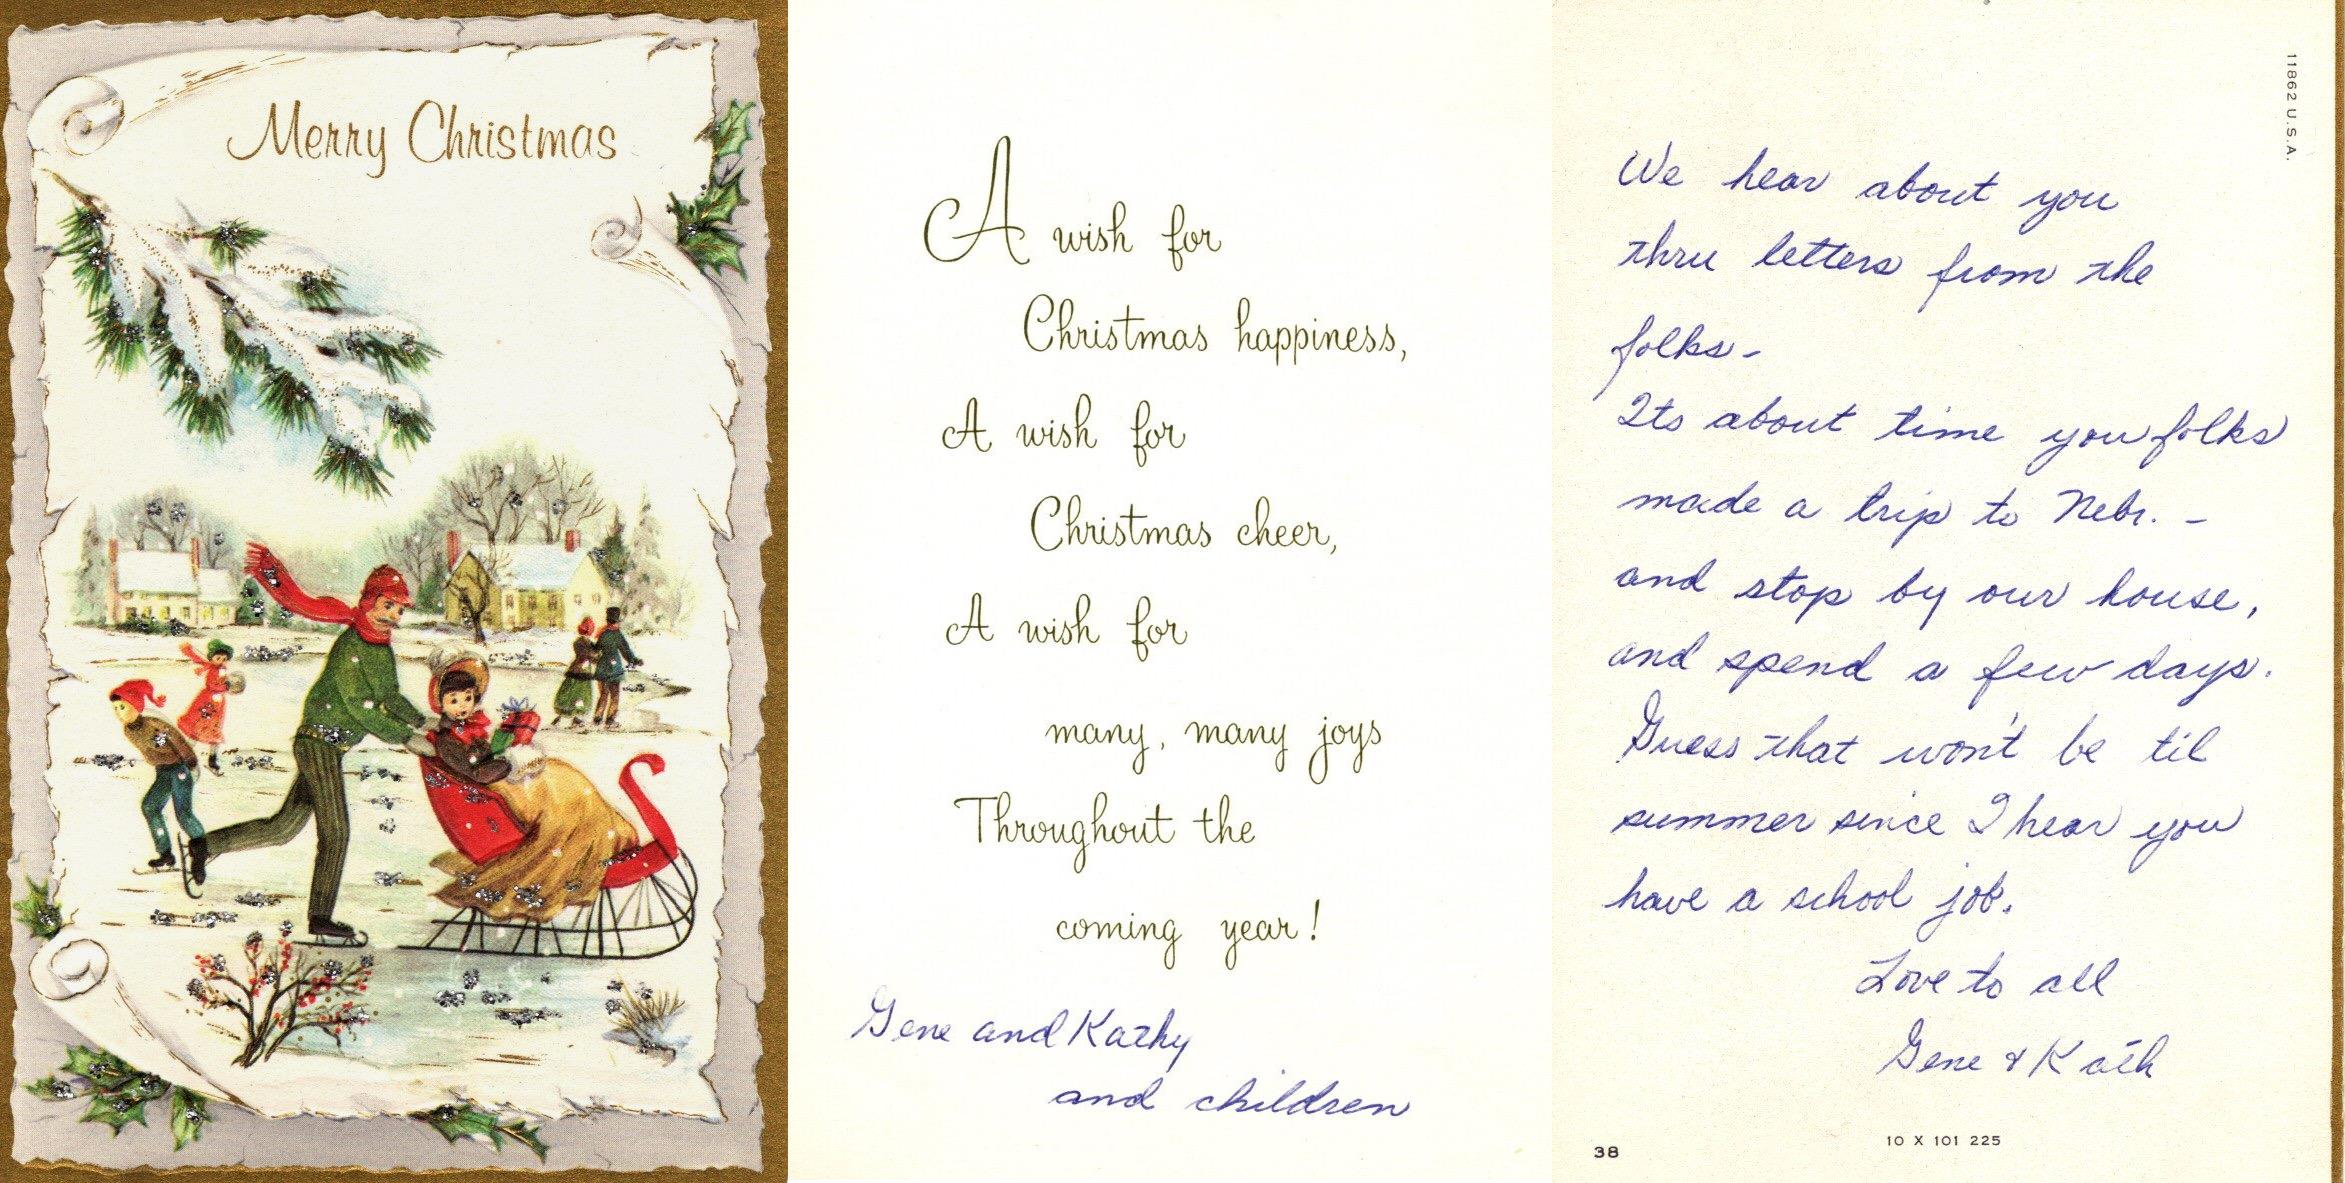 Merry Christmas
A wish for
Christmas happiness,
A wish for
Christmas cheer,
A wish for
many, many joys
Throughout the
coming year!
Gene and Kathy
and children
11862 U.S.A.
We hear about you
thru letters from the
folks-
Its about time you folks
made a trip to Nebr. -
and stop by our house,
and spend a few days.
Guess that won't be til
summer since I hear you
have a school job.
Love to all
Gene & Kath
10 X 101 225
38